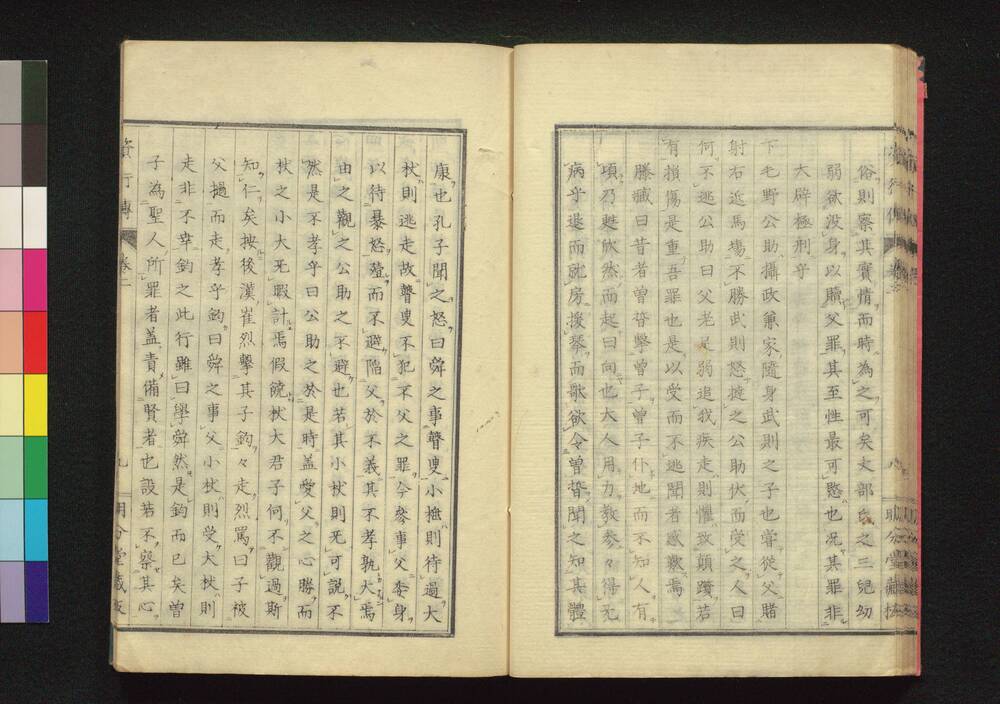 俗則察其實情而時為之可矣丈部氏之三兒幼
弱欲没身以贖父罪其至性最可愍也况其罪非
大辟極刑乎
下毛野公助攝政兼家隨身武則之子也嘗從父賭
射右近馬場不勝武則怒撻之公助伏而受之人曰
何不逃公助曰父老足弱追我疾走則懼致顛躓若
有損傷是重吾罪也是以受而不逃聞者感歎焉
滕臧曰昔者曾晳擊曾子曾子仆地而不知人有
頃乃甦欣然而起曰向也大人用力教参々得无
病乎退而就房援琴而歌欲令曾晳聞之知其體
康也孔子聞之怒曰舜之事瞽叟小捶則待過大
杖則逃走故瞽叟不犯不父之罪今參事父委身
以待暴怒殪而不避陷父於不義其不孝孰大焉
由之觀之公助之不避也若其小杖則无可說不
然是不孝乎曰公助之於是時盖愛父之心勝而
杖之小大无暇計焉假饒杖大君子何不觀過斯
知仁矣按後漢崔烈擊其子鈞々走烈罵曰子被
父撾而走孝乎鈞曰舜之事父小杖則受大杖則
走非不幸鈞之此行雖曰學舜然是鈞而已矣曾
子為聖人所罪者盖責備賢者也設若不粲其心
資行傳 卷二 九 明分堂藏版